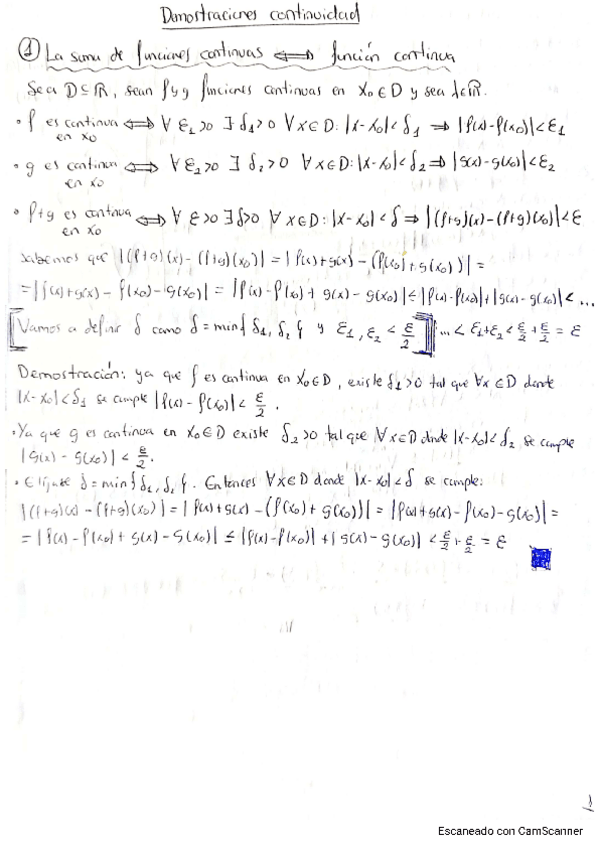 Demostraciones continuidad
① La suma de funciones continuas ⟺ función continua
Sea D⊆ℝ, sean f y g funciones continuas en x₀∈D y sea λ∈ℝ.
• f es continua ⟺ ∀ ε₁>0 ∃ δ₁>0 ∀x∈D: |x-x₀|<δ₁ ⇒ |f(x)-f(x₀)|<ε₁
en x₀
• g es continua ⟺ ∀ ε₂>0 ∃ δ₂>0 ∀x∈D: |x-x₀|<δ₂ ⇒ |g(x)-g(x₀)|<ε₂
en x₀
• f+g es continua ⟺ ∀ ε>0 ∃δ>0 ∀x∈D: |x-x₀|<δ ⇒ |(f+g)(x)-(f+g)(x₀)|<ε
en x₀
Sabemos que |(f+g)(x)-(f+g)(x₀)| = |f(x)+g(x)-(f(x₀)+g(x₀))| =
= |f(x)+g(x)-f(x₀)-g(x₀)| = |f(x)-f(x₀)+g(x)-g(x₀)| ≤ |f(x)-f(x₀)|+|g(x)-g(x₀)| < ...
[Vamos a definir δ como δ=min{δ₁,δ₂} y ε₁,ε₂ < ε/2] ... < ε₁+ε₂ < ε/2+ε/2 = ε
Demostración: ya que f es continua en x₀∈D, existe δ₁>0 tal que ∀x∈D donde
|x-x₀|<δ₁ se cumple |f(x)-f(x₀)|<ε/2.
• Ya que g es continua en x₀∈D existe δ₂>0 tal que ∀x∈D donde |x-x₀|<δ₂ se cumple
|g(x)-g(x₀)|<ε/2.
• Elíjase δ=min{δ₁,δ₂}. Entonces ∀x∈D donde |x-x₀|<δ se cumple:
|(f+g)(x)-(f+g)(x₀)| = |f(x)+g(x)-(f(x₀)+g(x₀))| = |f(x)+g(x)-f(x₀)-g(x₀)| =
= |f(x)-f(x₀)+g(x)-g(x₀)| ≤ |f(x)-f(x₀)|+|g(x)-g(x₀)| < ε/2+ε/2 = ε
1
Escaneado con CamScanner